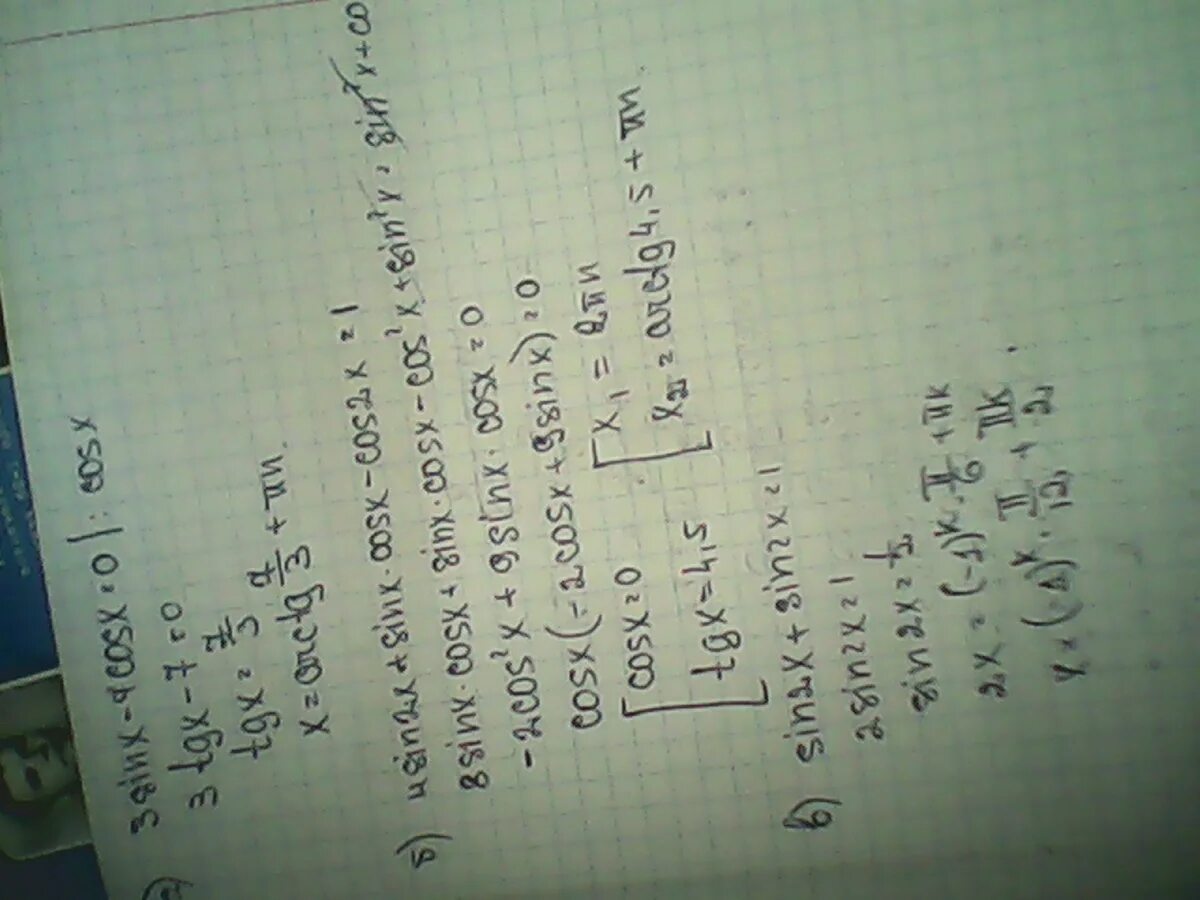 а) 3sinx - 7cosx = 0 | : cosx
3 tgx - 7 = 0
tgx = 7/3
x = arctg 7/3 + πn.
б) 4sin2x + sinx · cosx - cos2x = 1
8sinx · cosx + sinx · cosx - cos²x + sin²x = sin²x + co
-2cos²x + 9sinx · cosx = 0
cosx(-2cosx + 9sinx) = 0
[ cosx = 0 [ x₁ = 2πn
[ tgx = 4,5 [ x₂ = arctg 4,5 + πn
в) sin2x + sin2x = 1
2sin2x = 1
sin2x = 1/2
2x = (-1)ᵏ · π/6 + πk
x = (-1)ᵏ · π/12 + πk/2.